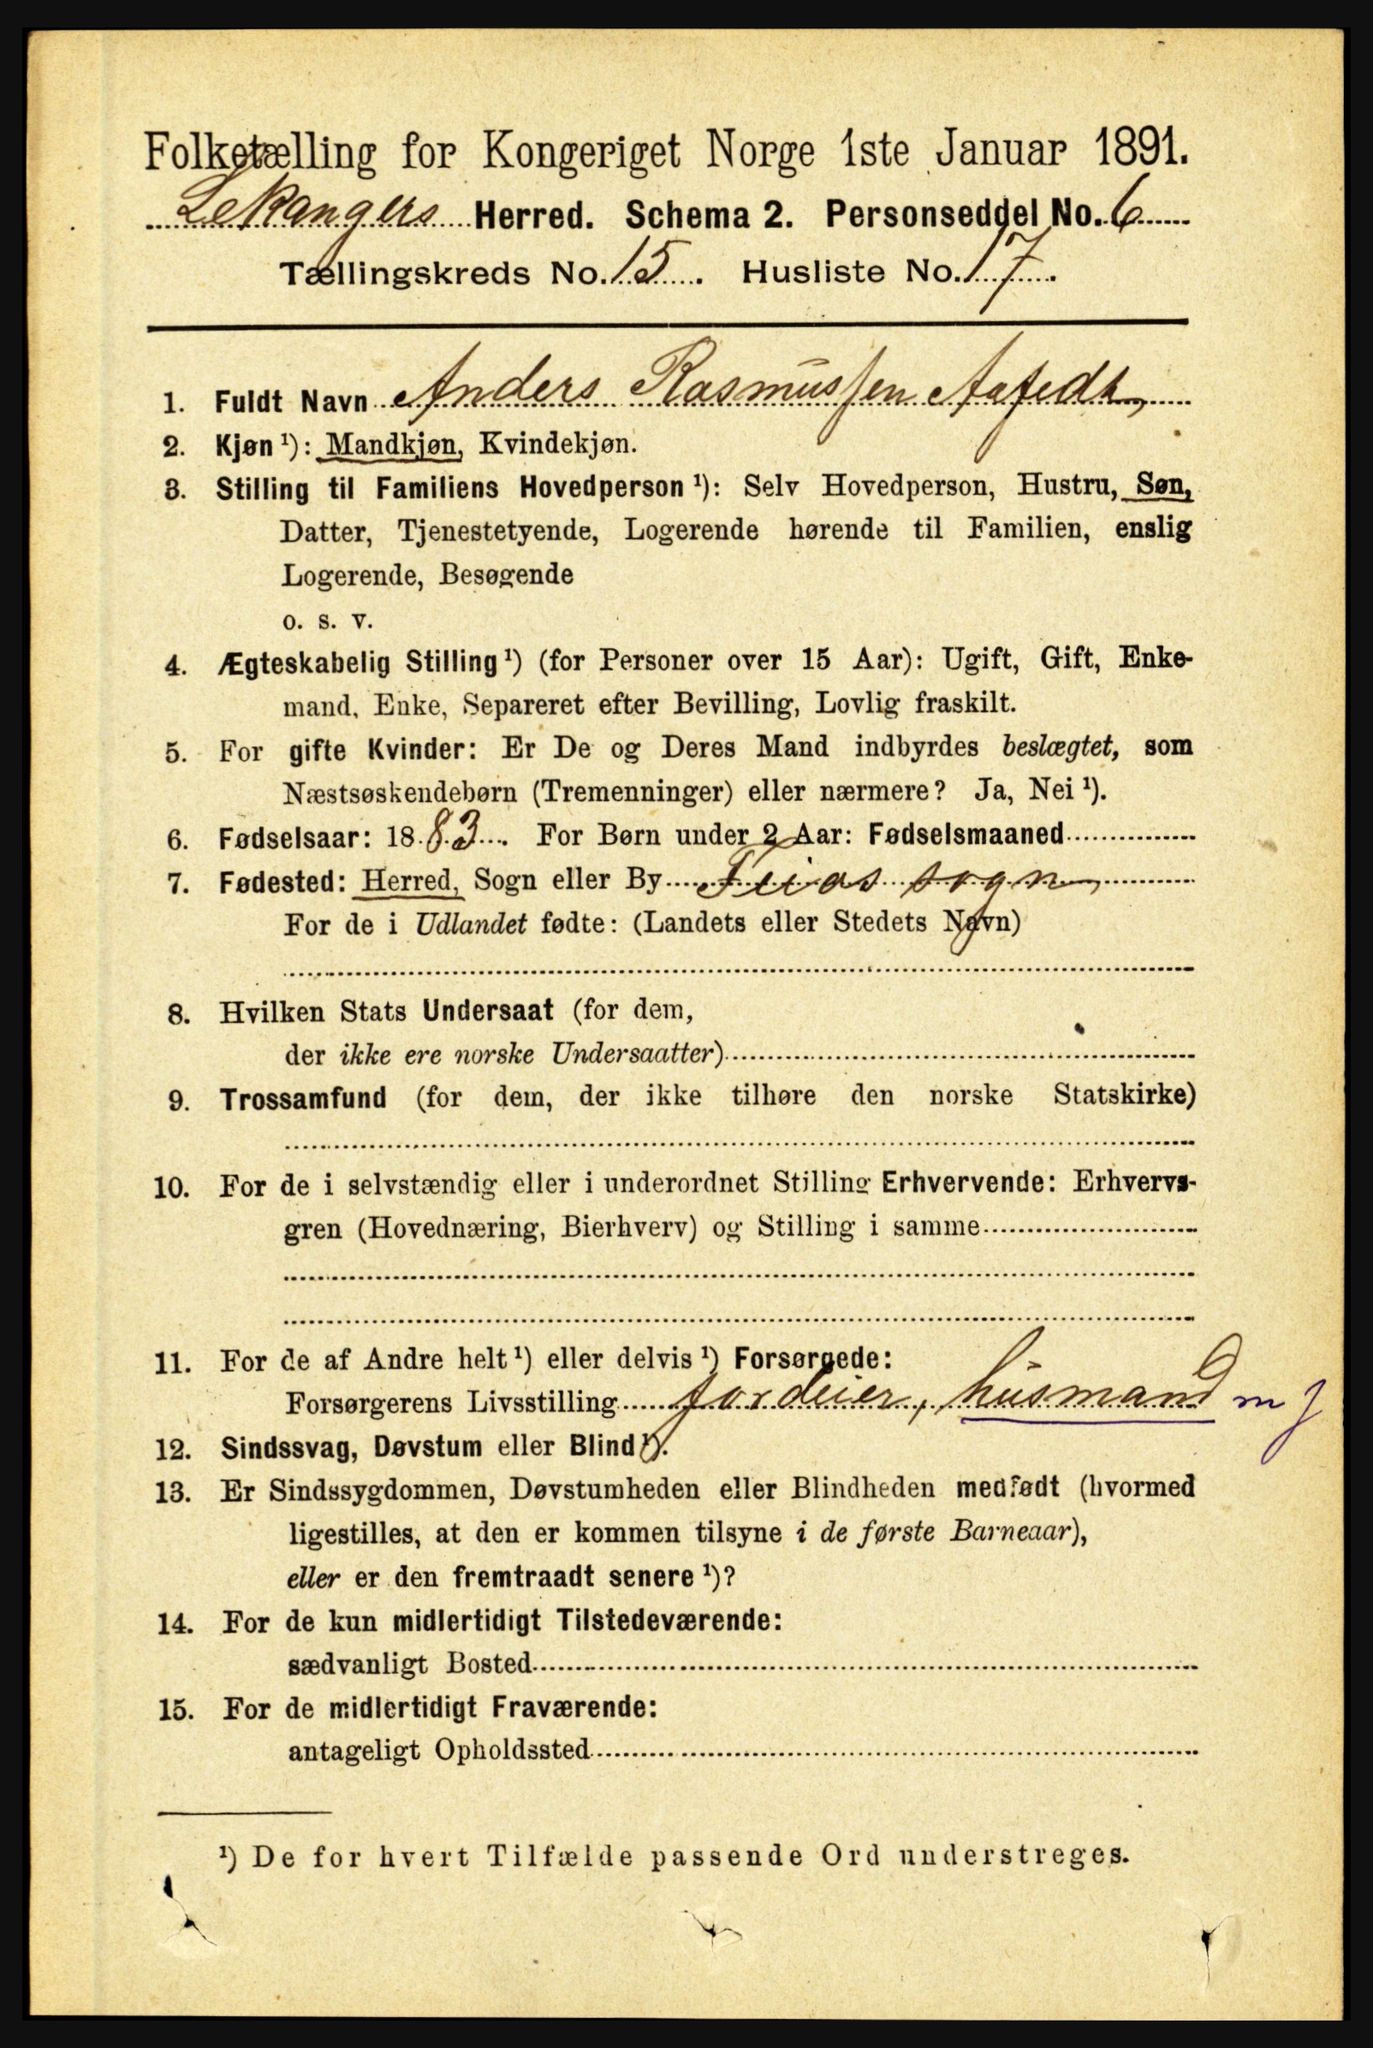 Folketælling for Kongeriget Norge 1ste Januar 1891.
Lekangers Herred. Schema 2. Personseddel No. 6
Tællingskreds No. 15. Husliste No. 17.
1. Fuldt Navn Anders Rasmussen Aafedt,
2. Kjøn ¹): Mandkjøn, Kvindekjøn.
3. Stilling til Familiens Hovedperson ¹): Selv Hovedperson, Hustru, Søn,
Datter, Tjenestetyende, Logerende hørende til Familien, enslig
Logerende, Besøgende
o. s. v.
4. Ægteskabelig Stilling ¹) (for Personer over 15 Aar): Ugift, Gift, Enke-
mand, Enke, Separeret efter Bevilling, Lovlig fraskilt.
5. For gifte Kvinder: Er De og Deres Mand indbyrdes beslægtet, som
Næstsøskendebørn (Tremenninger) eller nærmere? Ja, Nei ¹).
6. Fødselsaar: 1883. For Børn under 2 Aar: Fødselsmaaned
7. Fødested: Herred, Sogn eller By Feios sogn,
For de i Udlandet fødte: (Landets eller Stedets Navn)
8. Hvilken Stats Undersaat (for dem,
der ikke ere norske Undersaatter)
9. Trossamfund (for dem, der ikke tilhøre den norske Statskirke)
10. For de i selvstændig eller i underordnet Stilling Erhvervende: Erhvervs-
gren (Hovednæring, Bierhverv) og Stilling i samme
11. For de af Andre helt ¹) eller delvis ¹) Forsørgede:
Forsørgerens Livsstilling jordeier, husmand m j
12. Sindssvag, Døvstum eller Blind ¹).
13. Er Sindssygdommen, Døvstumheden eller Blindheden medfødt (hvormed
ligestilles, at den er kommen tilsyne i de første Barneaar),
eller er den fremtraadt senere ¹)?
14. For de kun midlertidigt Tilstedeværende:
sædvanligt Bosted
15. For de midlertidigt Fraværende:
antageligt Opholdssted
¹) De for hvert Tilfælde passende Ord understreges.